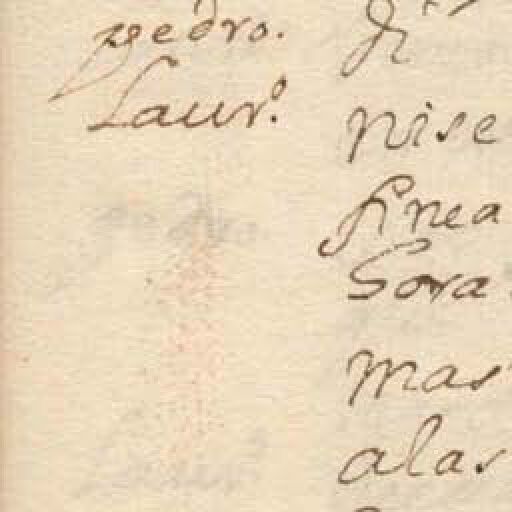 pedro.
Laur.º
nise
finea
Sora
mas
alas